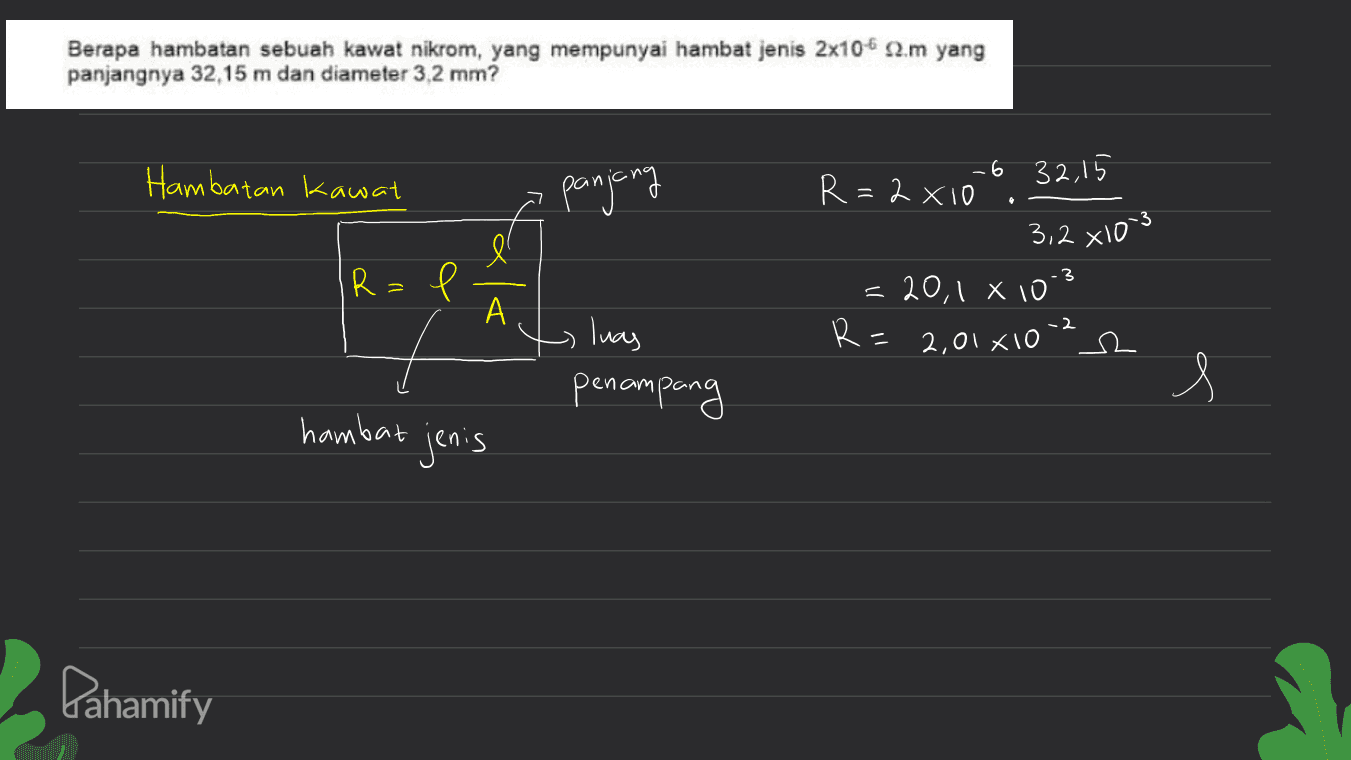 Berapa hambatan sebuah kawat nikrom, yang mempunyai hambat jenis 2x10⁻⁶ Ω.m yang
panjangnya 32,15 m dan diameter 3,2 mm?
Hambatan kawat
panjang
R = ρ l/A
luas
penampang
hambat jenis
R = 2 x10⁻⁶ . 32,15 / 3,2 x10⁻³
= 20,1 x 10⁻³
R = 2,01 x10⁻² Ω
Pahamify